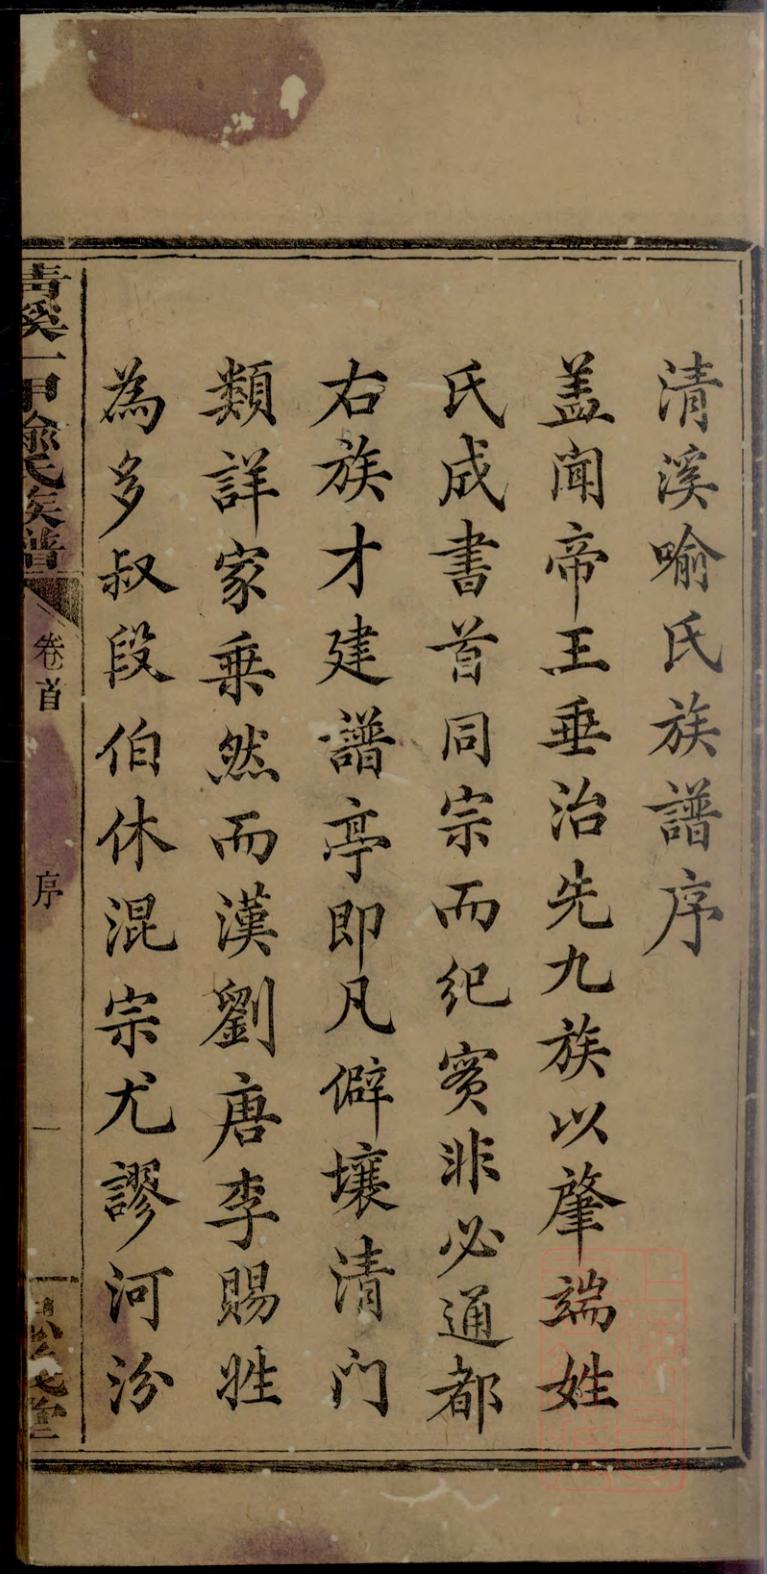 清溪喻氏族譜序
盖聞帝王垂治先九族以肇端姓
氏成書首同宗而纪實非必通都
右族才建譜亭即凡僻壤清门
類詳家乗然而漢劉唐李賜姓
為多叔段伯休混宗尤謬河汾
清溪一甲喻氏族譜
卷首
序
一